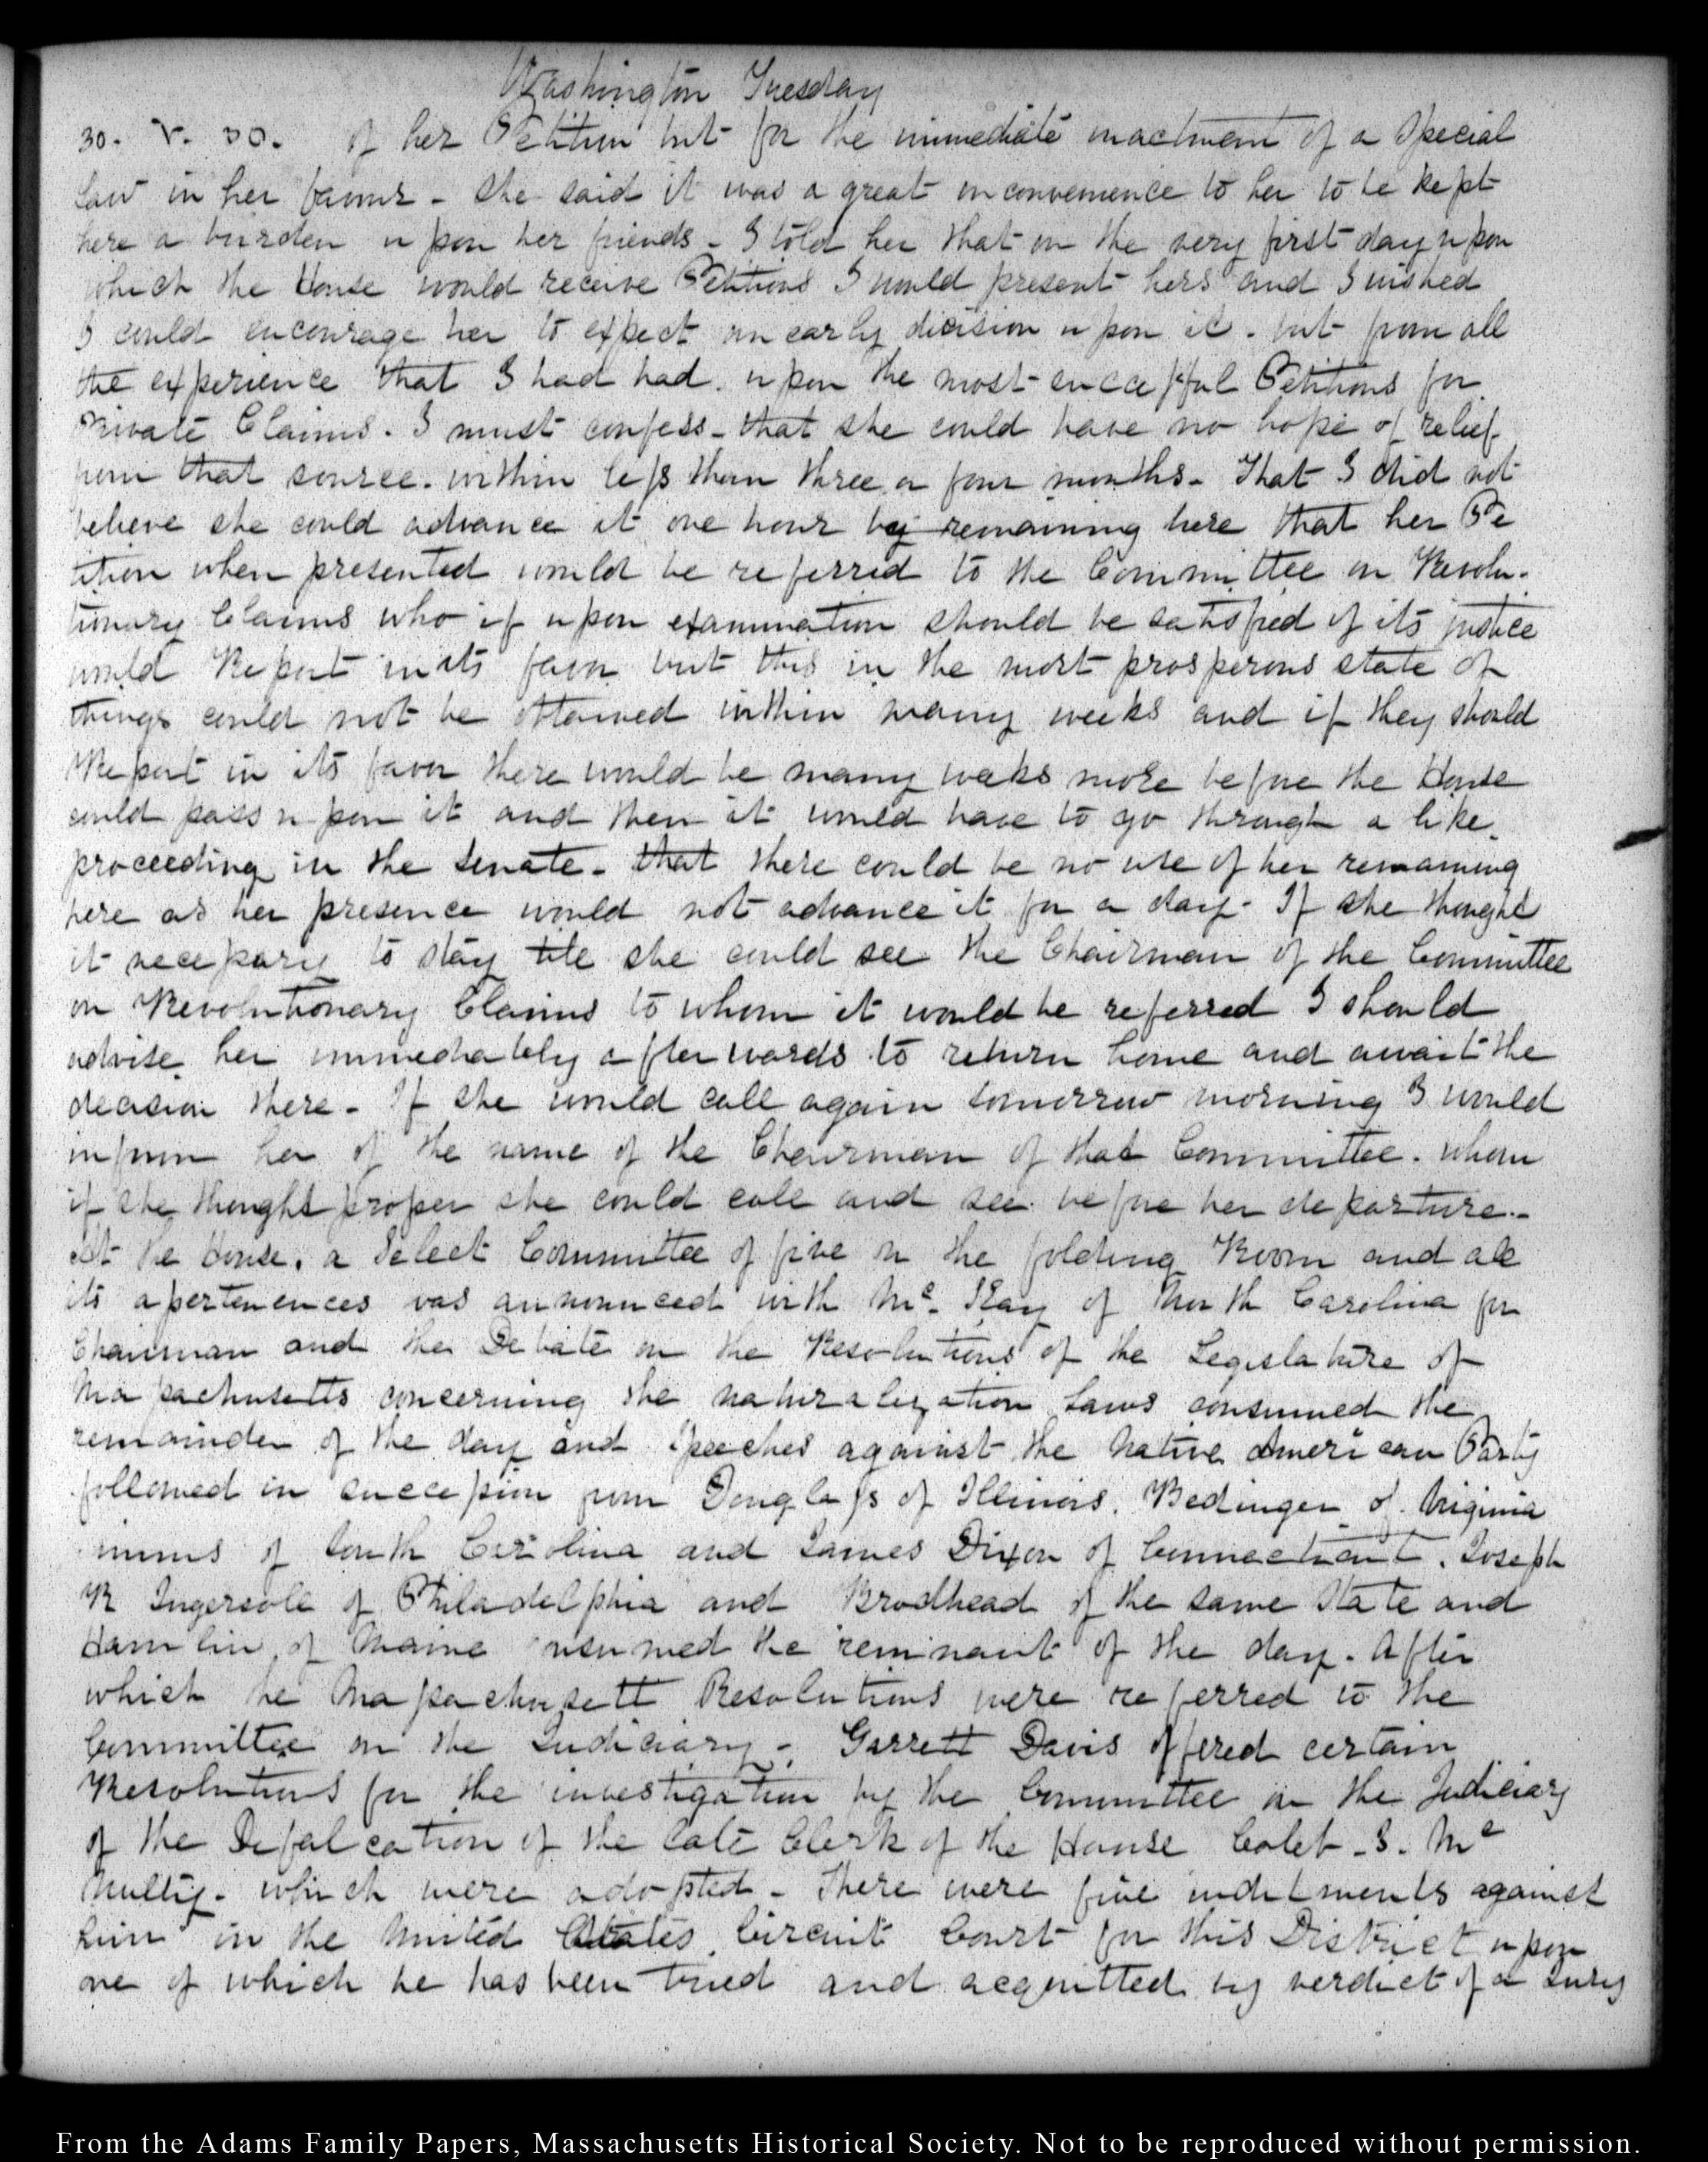 Washington Tuesday
30. V. 30. of her Petition but for the immediate enactment of a Special
law in her favour - She said it was a great inconvenience to her to be kept
here a burden upon her friends - I told her that on the very first day upon
which the House would receive Petitions I would present hers and I wished
I could encourage her to expect an early dicision upon it - but from all
the experience that I had had upon the most successful Petitions for
Private Claims. I must confess - that she could have no hope of relief
from that source. within less than three or four months - That I did not
believe she could advance it one hour by remaining here that her Pe
tition when presented would be referred to the Committee on Revolu-
tionary Claims who if upon examination should be satisfied of its justice
would Report in its favor but this in the most prosperous state of
things could not be attained within many weeks and if they should
Report in its favor there would be many weeks more before the House
could pass upon it and then it would have to go through a like
proceeding in the Senate - that there could be no use of her remaining
here as her presence would not advance it for a day - If she thought
it necessary to stay till she could see the Chairman of the Committee
on Revolutionary Claims to whom it would be referred I should
advise her immediately afterwards to return home and await the
decision there - If she would call again tomorrow morning I would
inform her of the name of the Chairman of that Committee. whom
if she thought proper she could call and see before her departure.-
At the House. a Select Committee of five on the folding Room and all
its apertenences was announced with Mc. Kay of North Carolina for
Chairman and the Debate on the Resolutions of the Legislature of
Massachusetts concerning the naturalization Laws consumed the
remainder of the day and Speeches against the Native American Party
followed in succession from Douglass of Illinois. Bedinger of Virginia
imms of South Carolina and James Dixon of Connecticut. Joseph
R Ingersoll of Philadelphia and Brodhead of the same State and
Hamlin of Maine nsumed the remnant of the day. After
which he Massachusett Resolutions were referred to the
Committee on the Judiciary - Garrett Davis offered certain
Resolutions for the investigation by the Committee on the Judiciary
of the Defalcation of the late Clerk of the House Caleb - J. Mc
Nulty - which were adopted - There were five inditments against
him in the United States Circuit Court for this District upon
one of which he has been tried and acquitted by verdict of a Jury
From the Adams Family Papers, Massachusetts Historical Society. Not to be reproduced without permission.